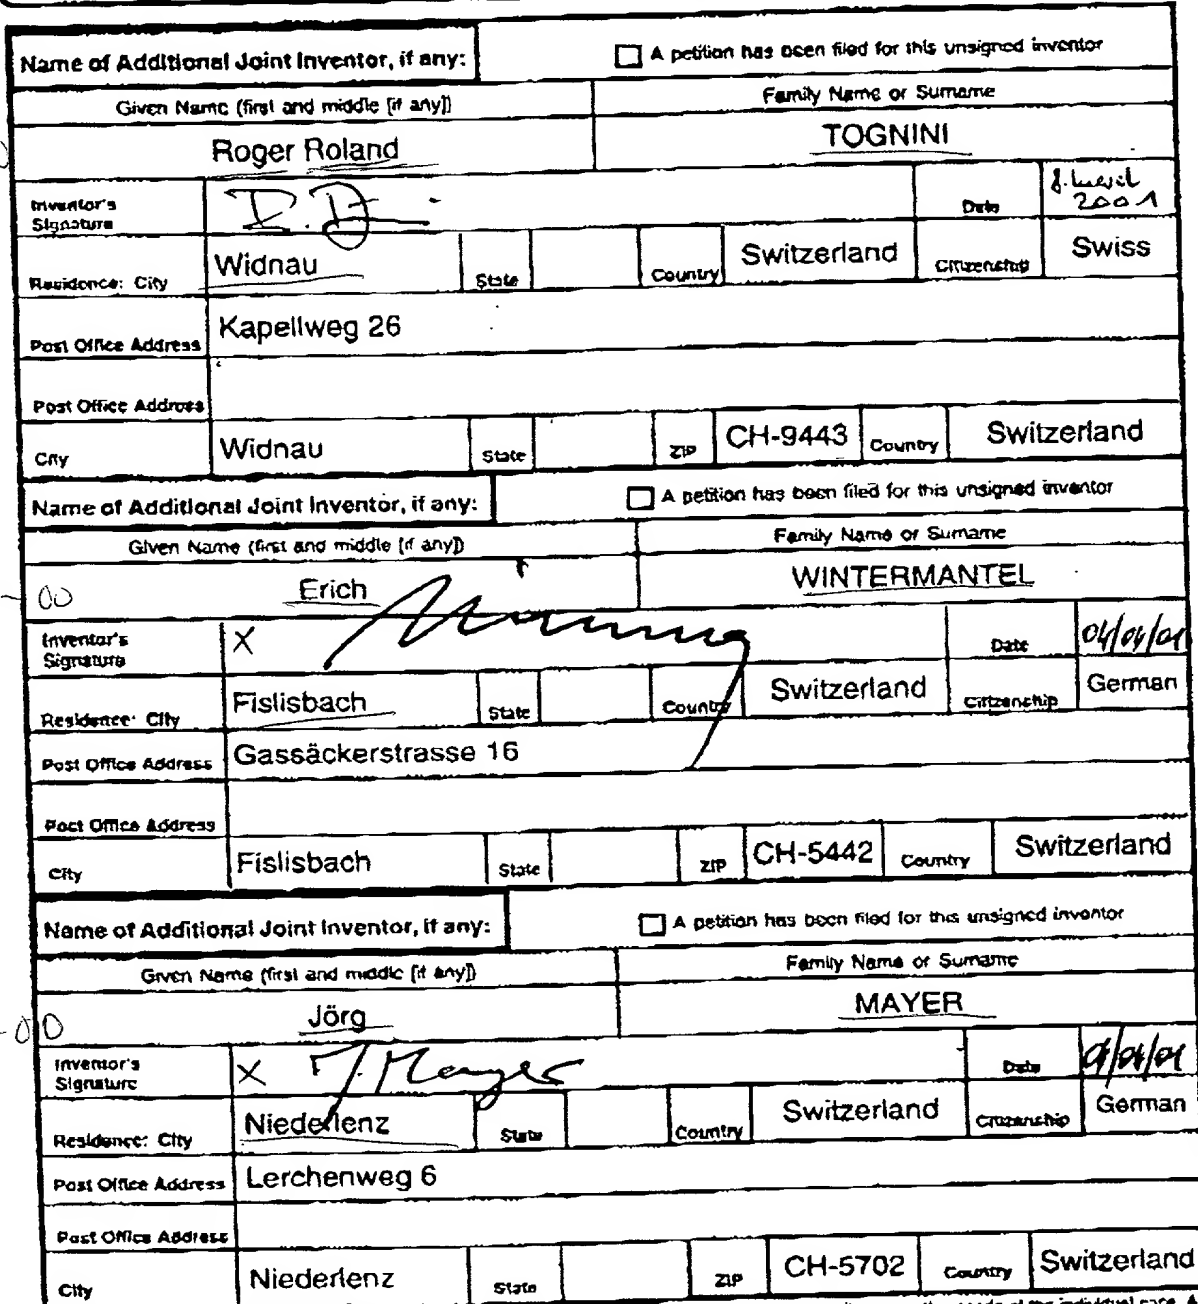 Name of Additional Joint Inventor, if any: A petition has been filed for this unsigned inventor
Given Name (first and middle [if any]) Family Name or Surname
Roger Roland TOGNINI
Inventor's Signature Date 2001
Residence: City Widnau State Country Switzerland Citizenship Swiss
Post Office Address Kapellweg 26
Post Office Address
City Widnau State ZIP CH-9443 Country Switzerland
Name of Additional Joint Inventor, if any: A petition has been filed for this unsigned inventor
Given Name (first and middle [if any]) Family Name or Surname
00 Erich WINTERMANTEL
Inventor's Signature X Date 04/04/01
Residence: City Fislisbach State Country Switzerland Citizenship German
Post Office Address Gassäckerstrasse 16
Post Office Address
City Fislisbach State ZIP CH-5442 Country Switzerland
Name of Additional Joint Inventor, if any: A petition has been filed for this unsigned inventor
Given Name (first and middle [if any]) Family Name or Surname
Jörg MAYER
Inventor's Signature X J. Mayer Date
Residence: City Niederlenz State Country Switzerland Citizenship German
Post Office Address Lerchenweg 6
Post Office Address
City Niederlenz State ZIP CH-5702 Country Switzerland